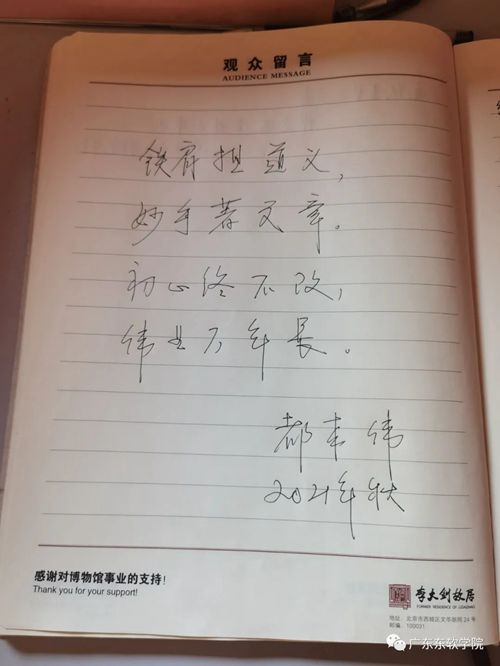 观众留言
AUDIENCE MESSAGE
铁肩担道义，
妙手著文章。
初心终不改，
伟业万年长。
都本伟
2021年秋
感谢对博物馆事业的支持！
Thank you for your support!
李大钊故居
FORMER RESIDENCE OF LIDAZHAO
地址：北京市西城区文华胡同24号
邮编：100031
广东东软学院